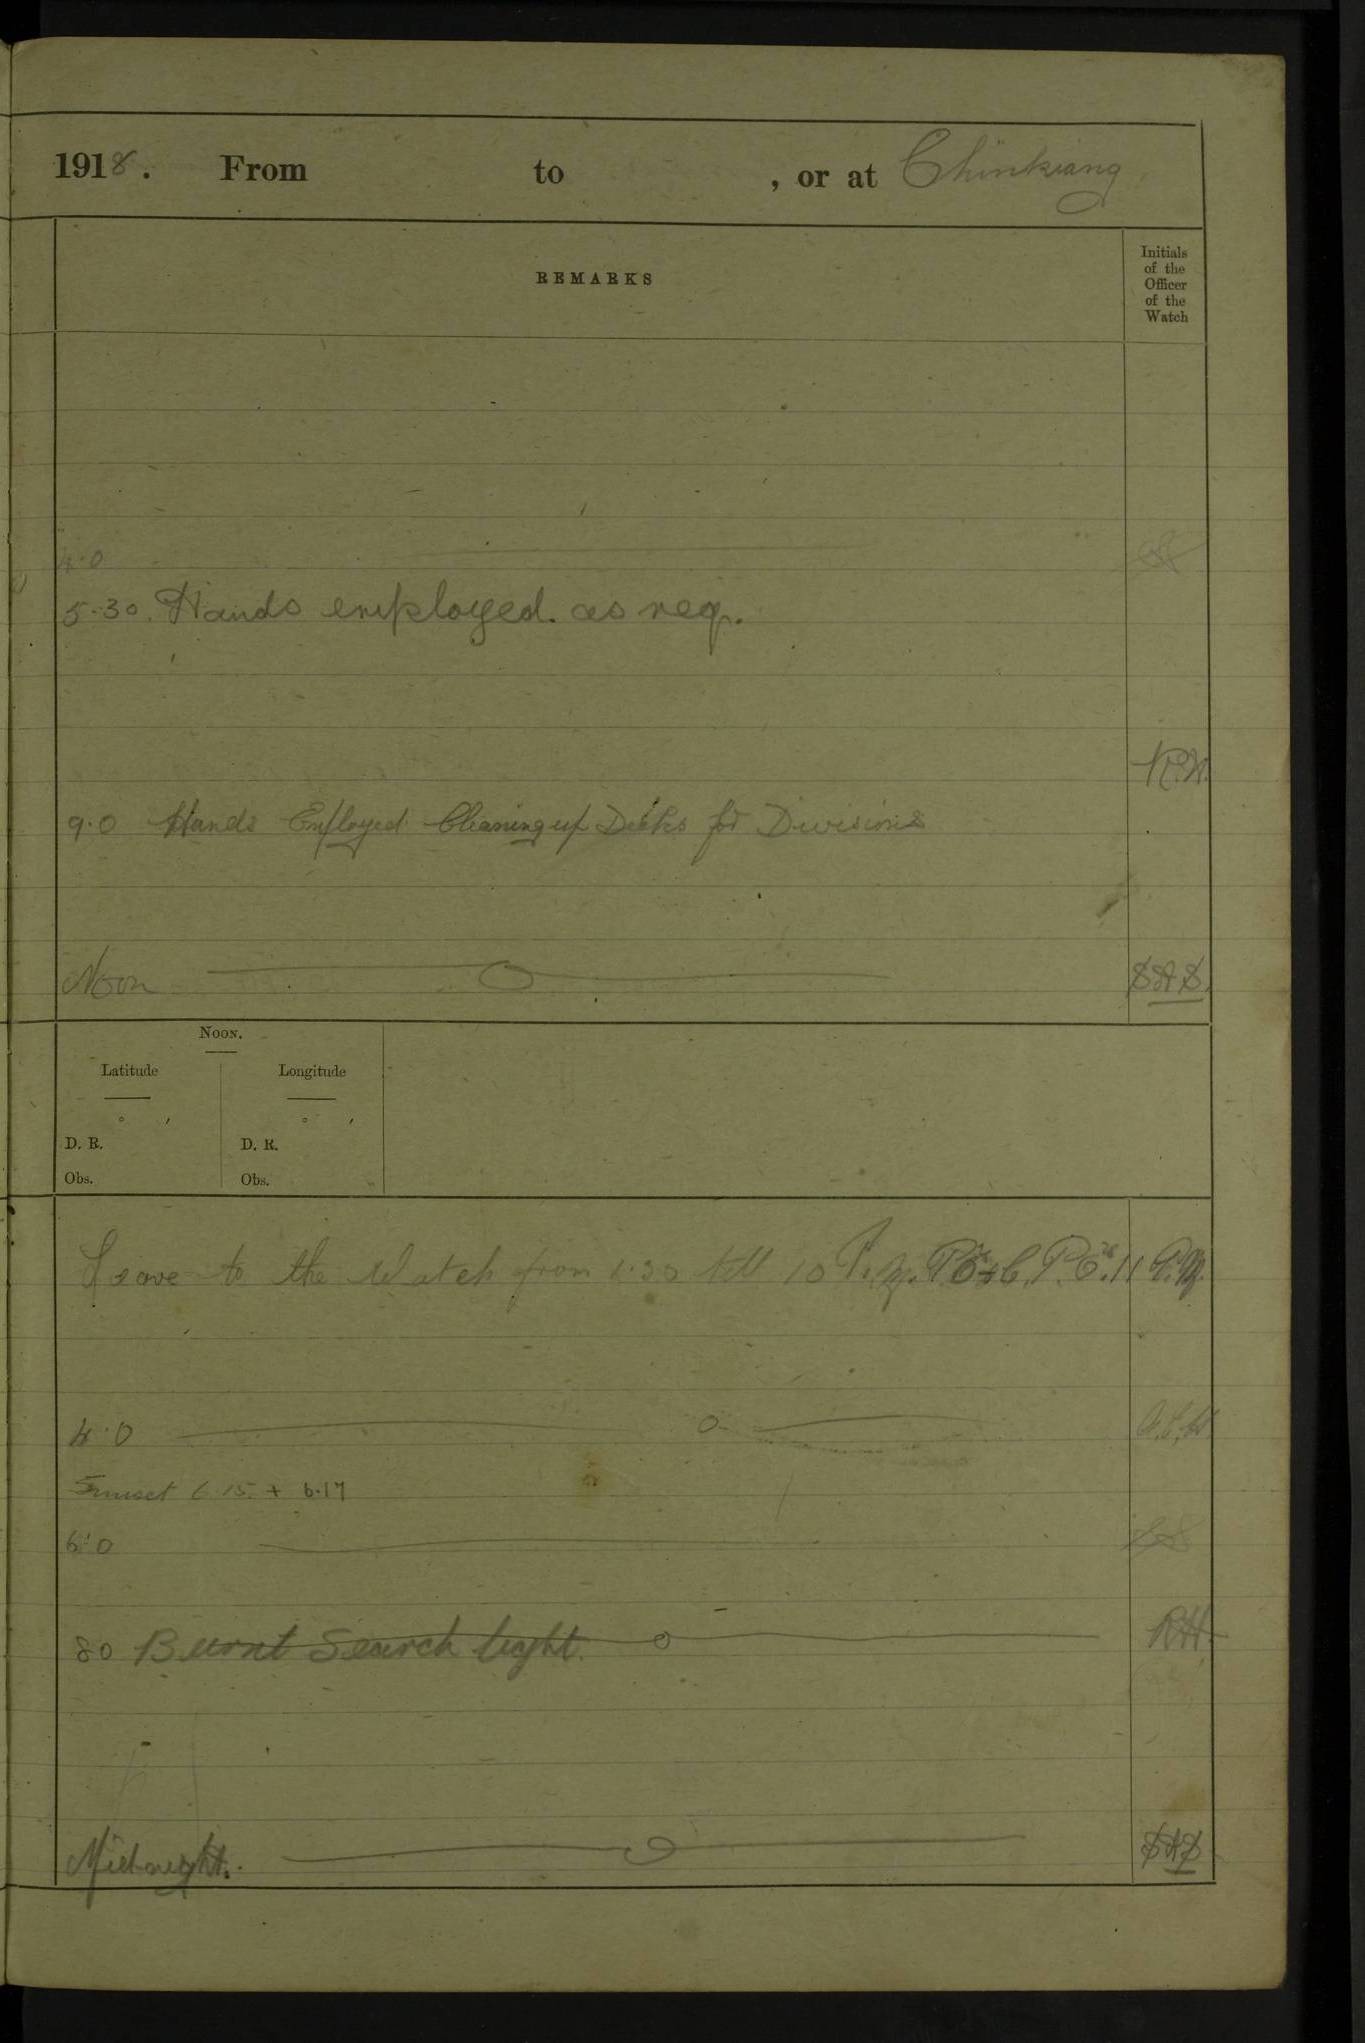 1918. From to , or at Chinkiang
REMARKS
Initials
of the
Officer
of the
Watch
4.0
5.30. Hands employed. as req.
R.H.
9.0 Hands Employed Cleaning up Decks for Divisions
Noon SAS.
NOON.
Latitude Longitude
° ′ ° ′
D. R. D. R.
Obs. Obs.
Leave to the Watch from 1.30 till 10 P.M. P.Os & C.P.Os. 11 P.M.
4.0
Sunset 6.15. + 6.17
6.0
8.0 Burnt Search light. RH.
Midnight. SAS